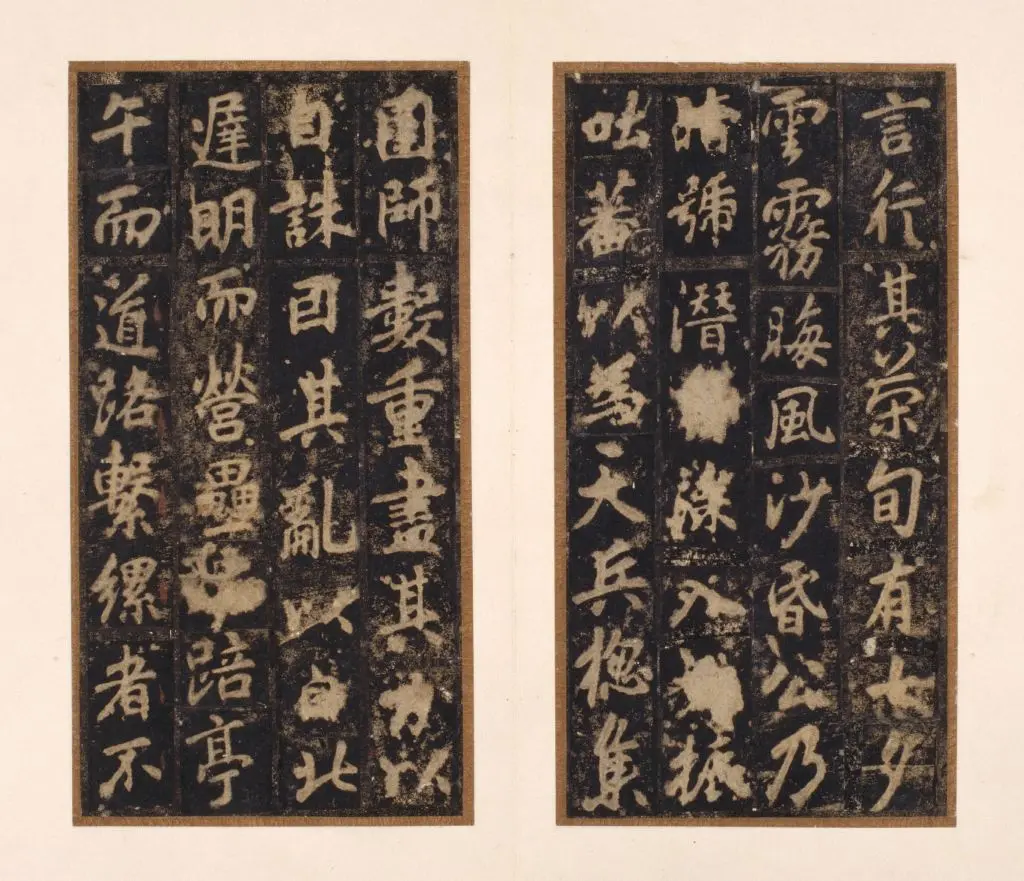 言行其策旬有七夕
雲霧晦風沙昏公乃
號潛入振
咄蕃以為天兵揔集
圍師數重盡其力以
自誅因其亂以北
遲明而營壘踣亭
午而道路繫縲者不